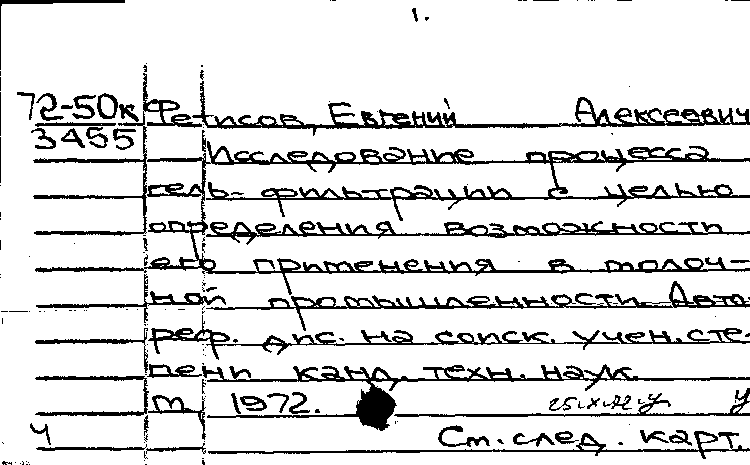 1.
72-50к Фетисов, Евгений Алексеевич
3455
Исследование процесса
гель-фильтрации с целью
определения возможности
его применения в молоч-
ной промышленности. Авто-
реф. дис. на соиск. учен. сте-
пени канд. техн. наук.
М. 1972. У
Ч См. след. карт.